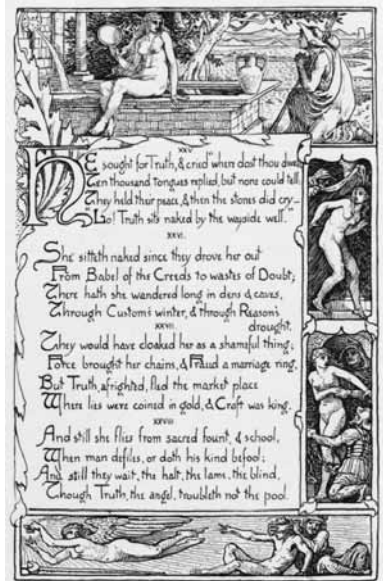 XXV
HE sought for Truth, & cried "where dost thou dwell"
Ten thousand tongues replied, but none could tell:
They held their peace, & then the stones did cry—
"Lo! Truth sits naked by the wayside well."
XXVI.
She sitteth naked since they drove her out
From Babel of the Creeds to wastes of Doubt;
There hath she wandered long in dens & caves,
Through Custom's winter, & through Reason's
drought.
XXVII
They would have cloaked her as a shameful thing;
Force brought her chains, & Fraud a marriage ring,
But Truth, afrighted, fled the market place
Where lies were coined in gold, & Craft was king.
XXVIII
And still she flies from sacred fount, & school,
When man defiles, or doth his kind befool;
And still they wait, the halt, the lame, the blind,
Though Truth, the angel, troubleth not the pool.